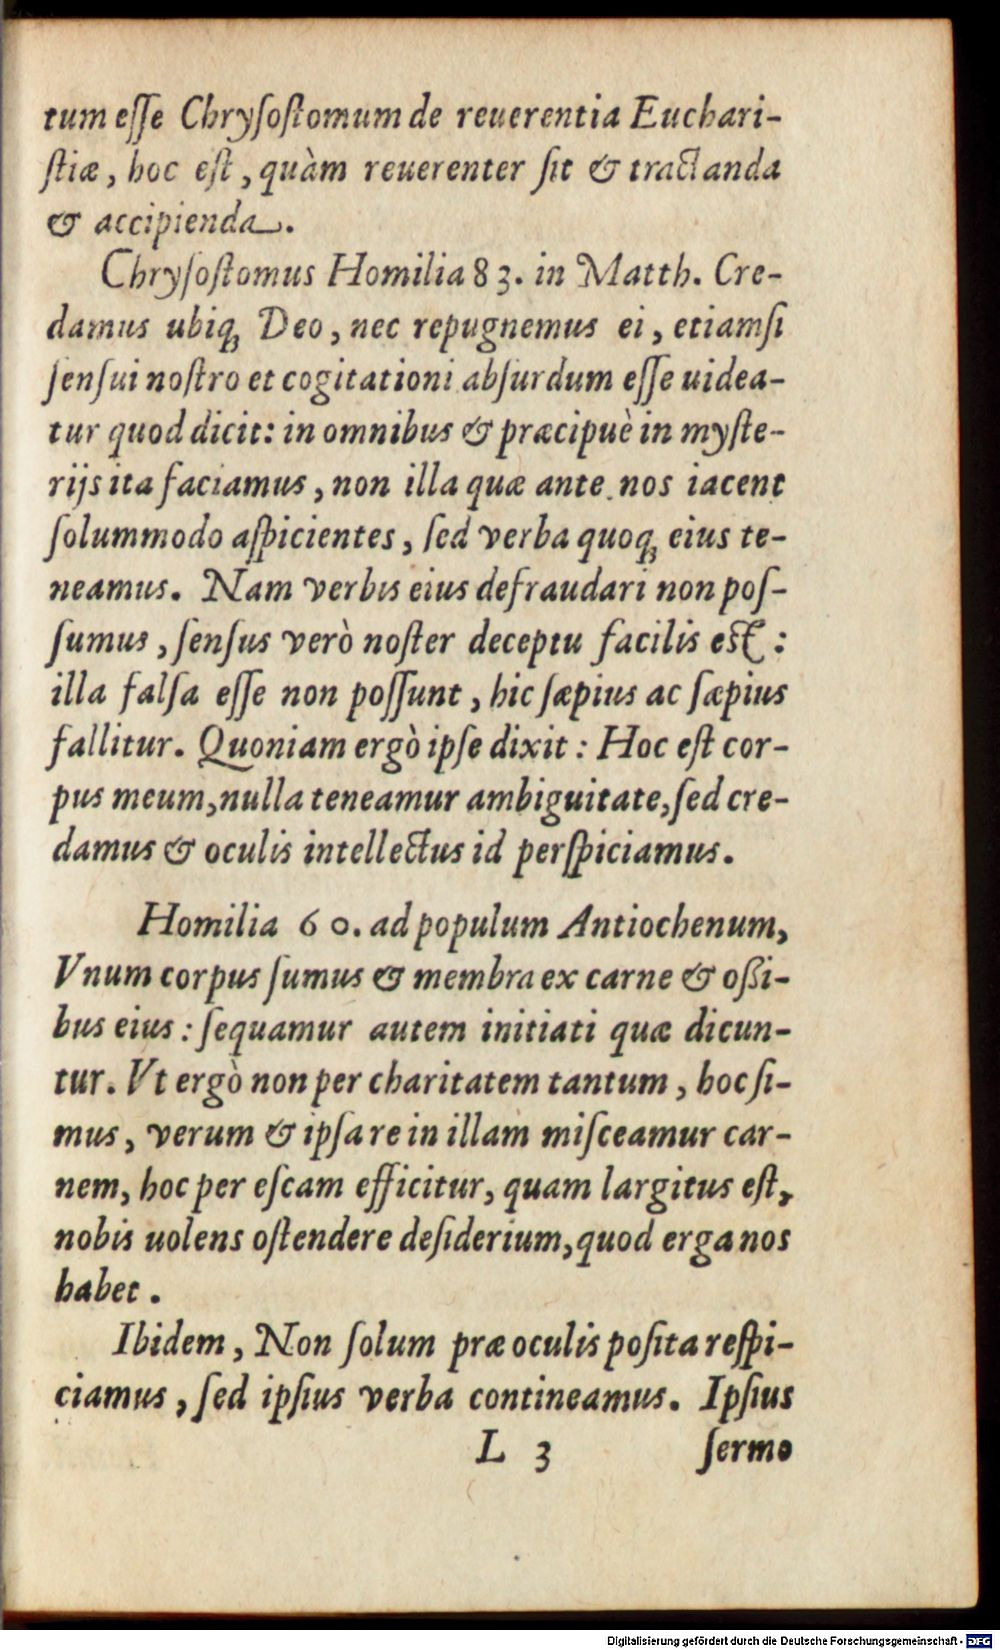 tum eſſe Chryſoſtomum de reuerentia Euchari-
ſtiæ, hoc eſt, quàm reuerenter ſit & tractanda
& accipienda.
Chryſoſtomus Homilia 83. in Matth. Cre-
damus ubiq; Deo, nec repugnemus ei, etiamſi
ſenſui noſtro et cogitationi abſurdum eſſe uidea-
tur quod dicit: in omnibus & præcipuè in myſte-
rijs ita faciamus, non illa quæ ante nos iacent
ſolummodo aſpicientes, ſed verba quoq; eius te-
neamus. Nam verbis eius defraudari non poſ-
ſumus, ſenſus verò noſter deceptu facilis eſt:
illa falſa eſſe non poſſunt, hic ſæpius ac ſæpius
fallitur. Quoniam ergò ipſe dixit: Hoc eſt cor-
pus meum, nulla teneamur ambiguitate, ſed cre-
damus & oculis intellectus id perſpiciamus.
Homilia 60. ad populum Antiochenum,
Vnum corpus ſumus & membra ex carne & oßi-
bus eius: ſequamur autem initiati quæ dicun-
tur. Vt ergò non per charitatem tantum, hoc ſi-
mus, verum & ipſa re in illam miſceamur car-
nem, hoc per eſcam efficitur, quam largitus eſt,
nobis uolens oſtendere deſiderium, quod erga nos
habet.
Ibidem, Non ſolum præ oculis poſita reſpi-
ciamus, ſed ipſius verba contineamus. Ipſius
L 3 ſermo
Digitalisierung gefördert durch die Deutsche Forschungsgemeinschaft - DFG